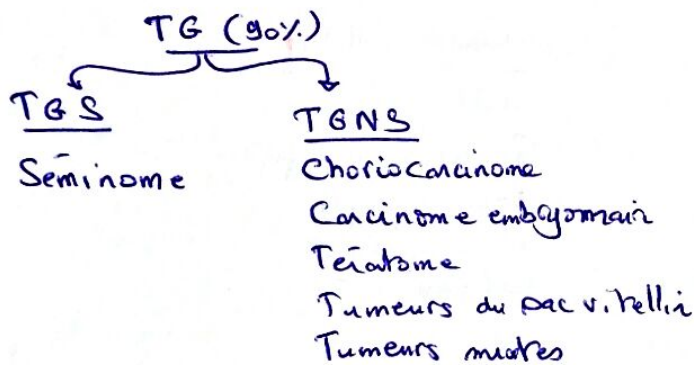 TG (90%)
TGS
Séminome
TGNS
Choriocarcinome
Carcinome embryonnair
Tératome
Tumeurs du sac vitellin
Tumeurs mixtes